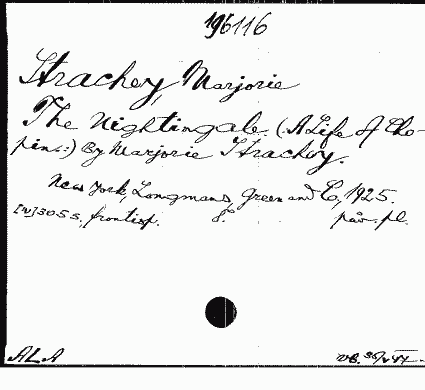 196116
Strachey, Marjorie
The Nightingale. (A Life of Cho-
pin.:) By Marjorie Strachey.
New York, Longmans, Green and Co, 1925.
305 s., frontisp. 8. pl.
ALA